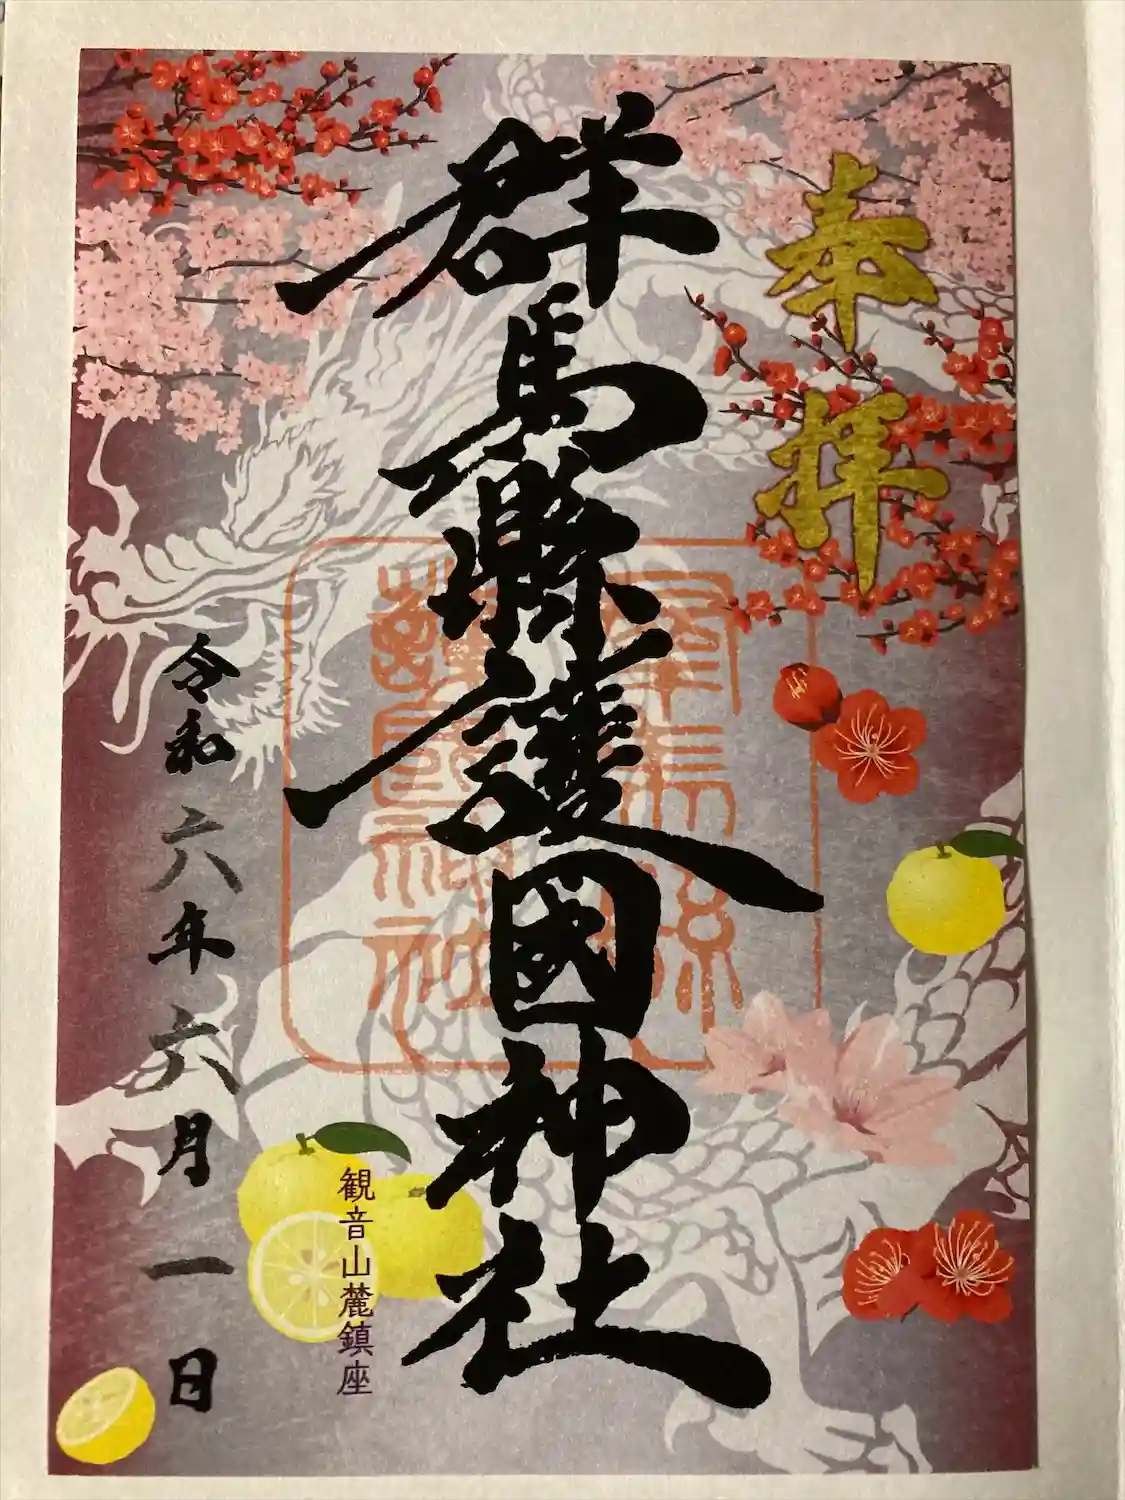 奉拝
群馬縣護國神社
群馬縣
護國神社
観音山麓鎮座
令和六年六月一日